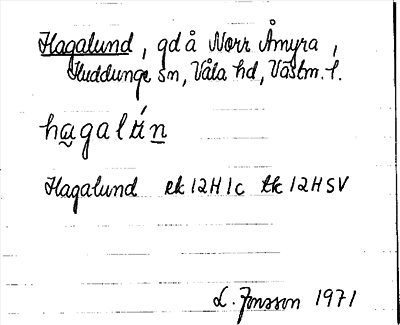 Hagalund, gd å Norr Åmyra,
Huddunge sn, Våla hd, Västm. l.
hagalún
Hagalund ek 12H1c tk 12HSV
L. Jonsson 1971